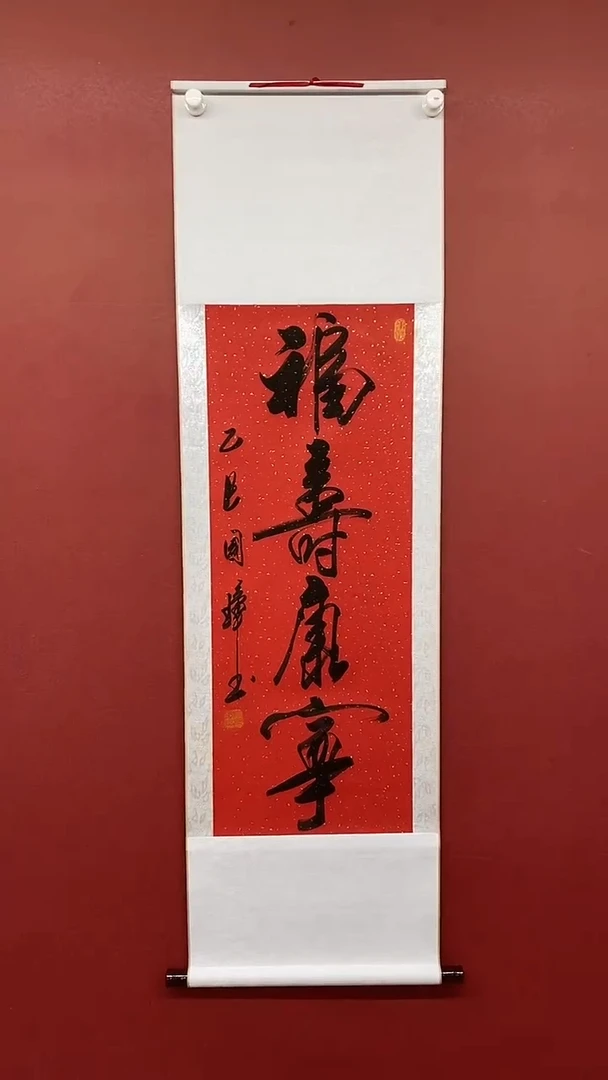 福壽康寧
乙巳國璋书